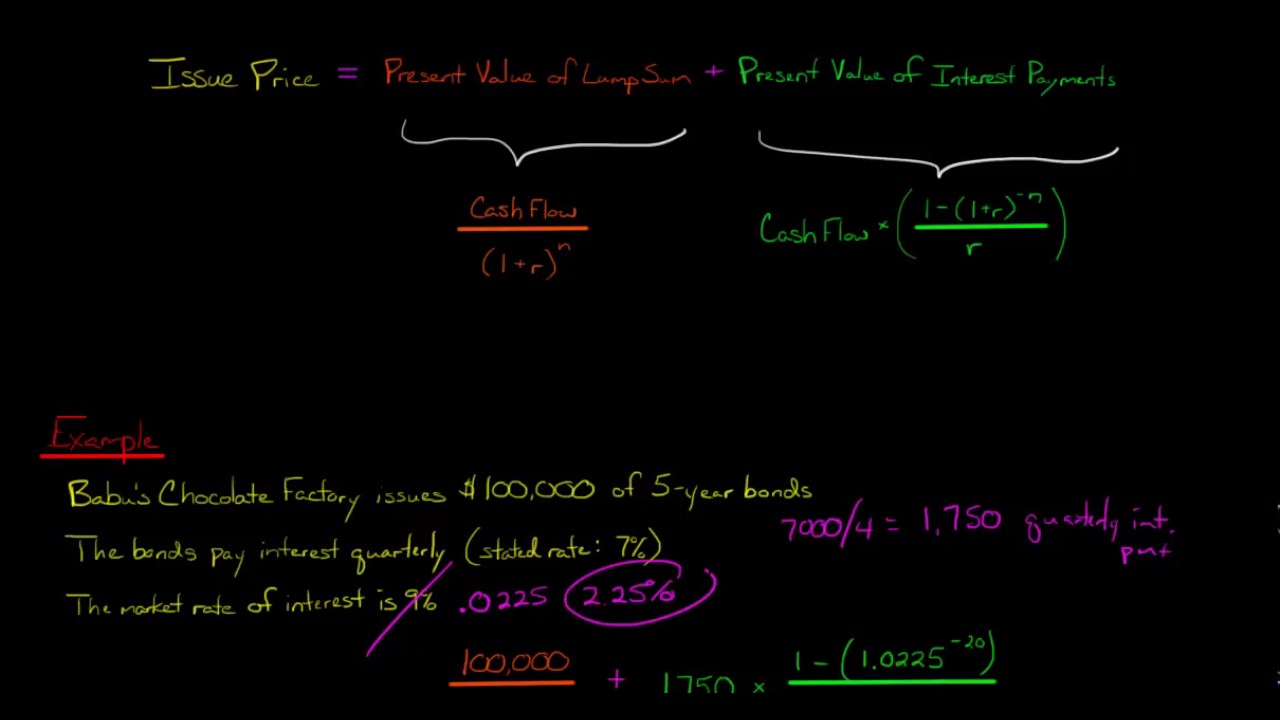 Issue Price = Present Value of Lump Sum + Present Value of Interest Payments
Cash Flow
(1+r)^n
Cash Flow × (1-(1+r)^-n
r)
Example
Babu's Chocolate Factory issues $100,000 of 5-year bonds
7000/4 = 1,750 quarterly int.
pmt
The bonds pay interest quarterly (stated rate: 7%)
The market rate of interest is 9% .0225 2.25%
100,000 + 1750 × 1-(1.0225^-20)